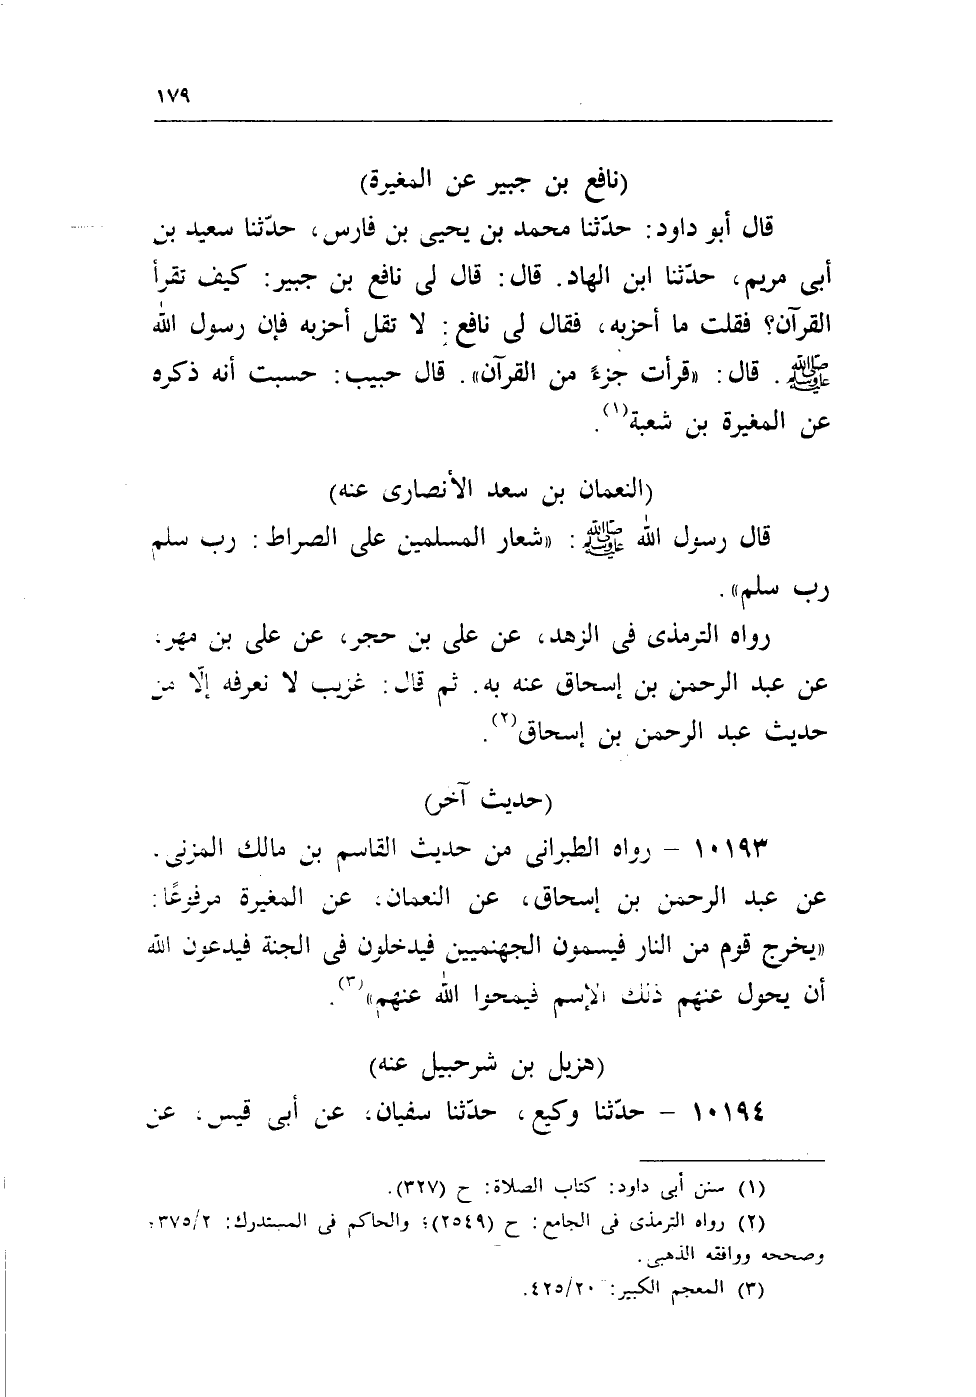 ١٧٩
(نافع بن جبير عن المغيرة)
قال أبو داود: حدّثنا محمد بن يحيى بن فارس، حدّثنا سعيد بن
أبى مريم، حدّثنا ابن الهاد. قال: قال لى نافع بن جبير: كيف تقرأ
القرآن؟ فقلت ما أحزبه، فقال لى نافع: لا تقل أحزبه فإن رسول الله
ﷺ. قال: «قرأت جزءً من القرآن». قال حبيب: حسبت أنه ذكره
عن المغيرة بن شعبة(١).
(النعمان بن سعد الأنصارى عنه)
قال رسول الله ﷺ: «شعار المسلمين على الصراط: رب سلم
رب سلم».
رواه الترمذى فى الزهد، عن على بن حجر، عن على بن مهر،
عن عبد الرحمن بن إسحاق عنه به. ثم قال: غزيب لا نعرفه إلّا من
حديث عبد الرحمن بن إسحاق(٢).
(حديث آخر)
١٠١٩٣ - رواه الطبرانى من حديث القاسم بن مالك المزنى.
عن عبد الرحمن بن إسحاق، عن النعمان، عن المغيرة مرفوعًا:
«يخرج قوم من النار فيسمون الجهنميين فيدخلون فى الجنة فيدعون الله
أن يحول عنهم ذلك الإسم فيمحوا الله عنهم»(٣).
(هزيل بن شرحبيل عنه)
١٠١٩٤ - حدّثنا وكيع، حدّثنا سفيان، عن أبى قيس، عن
(١) سنن أبى داود: كتاب الصلاة: ح (٣٢٧).
(٢) رواه الترمذى فى الجامع: ح (٢٥٤٩)؛ والحاكم فى المستدرك: ٣٧٥/٢،
وصححه ووافقه الذهبى.
(٣) المعجم الكبير: ٤٢٥/٢٠.